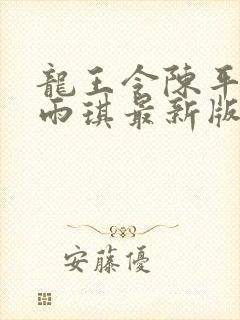 龍王令陳平
雨琪最新版
安藤優